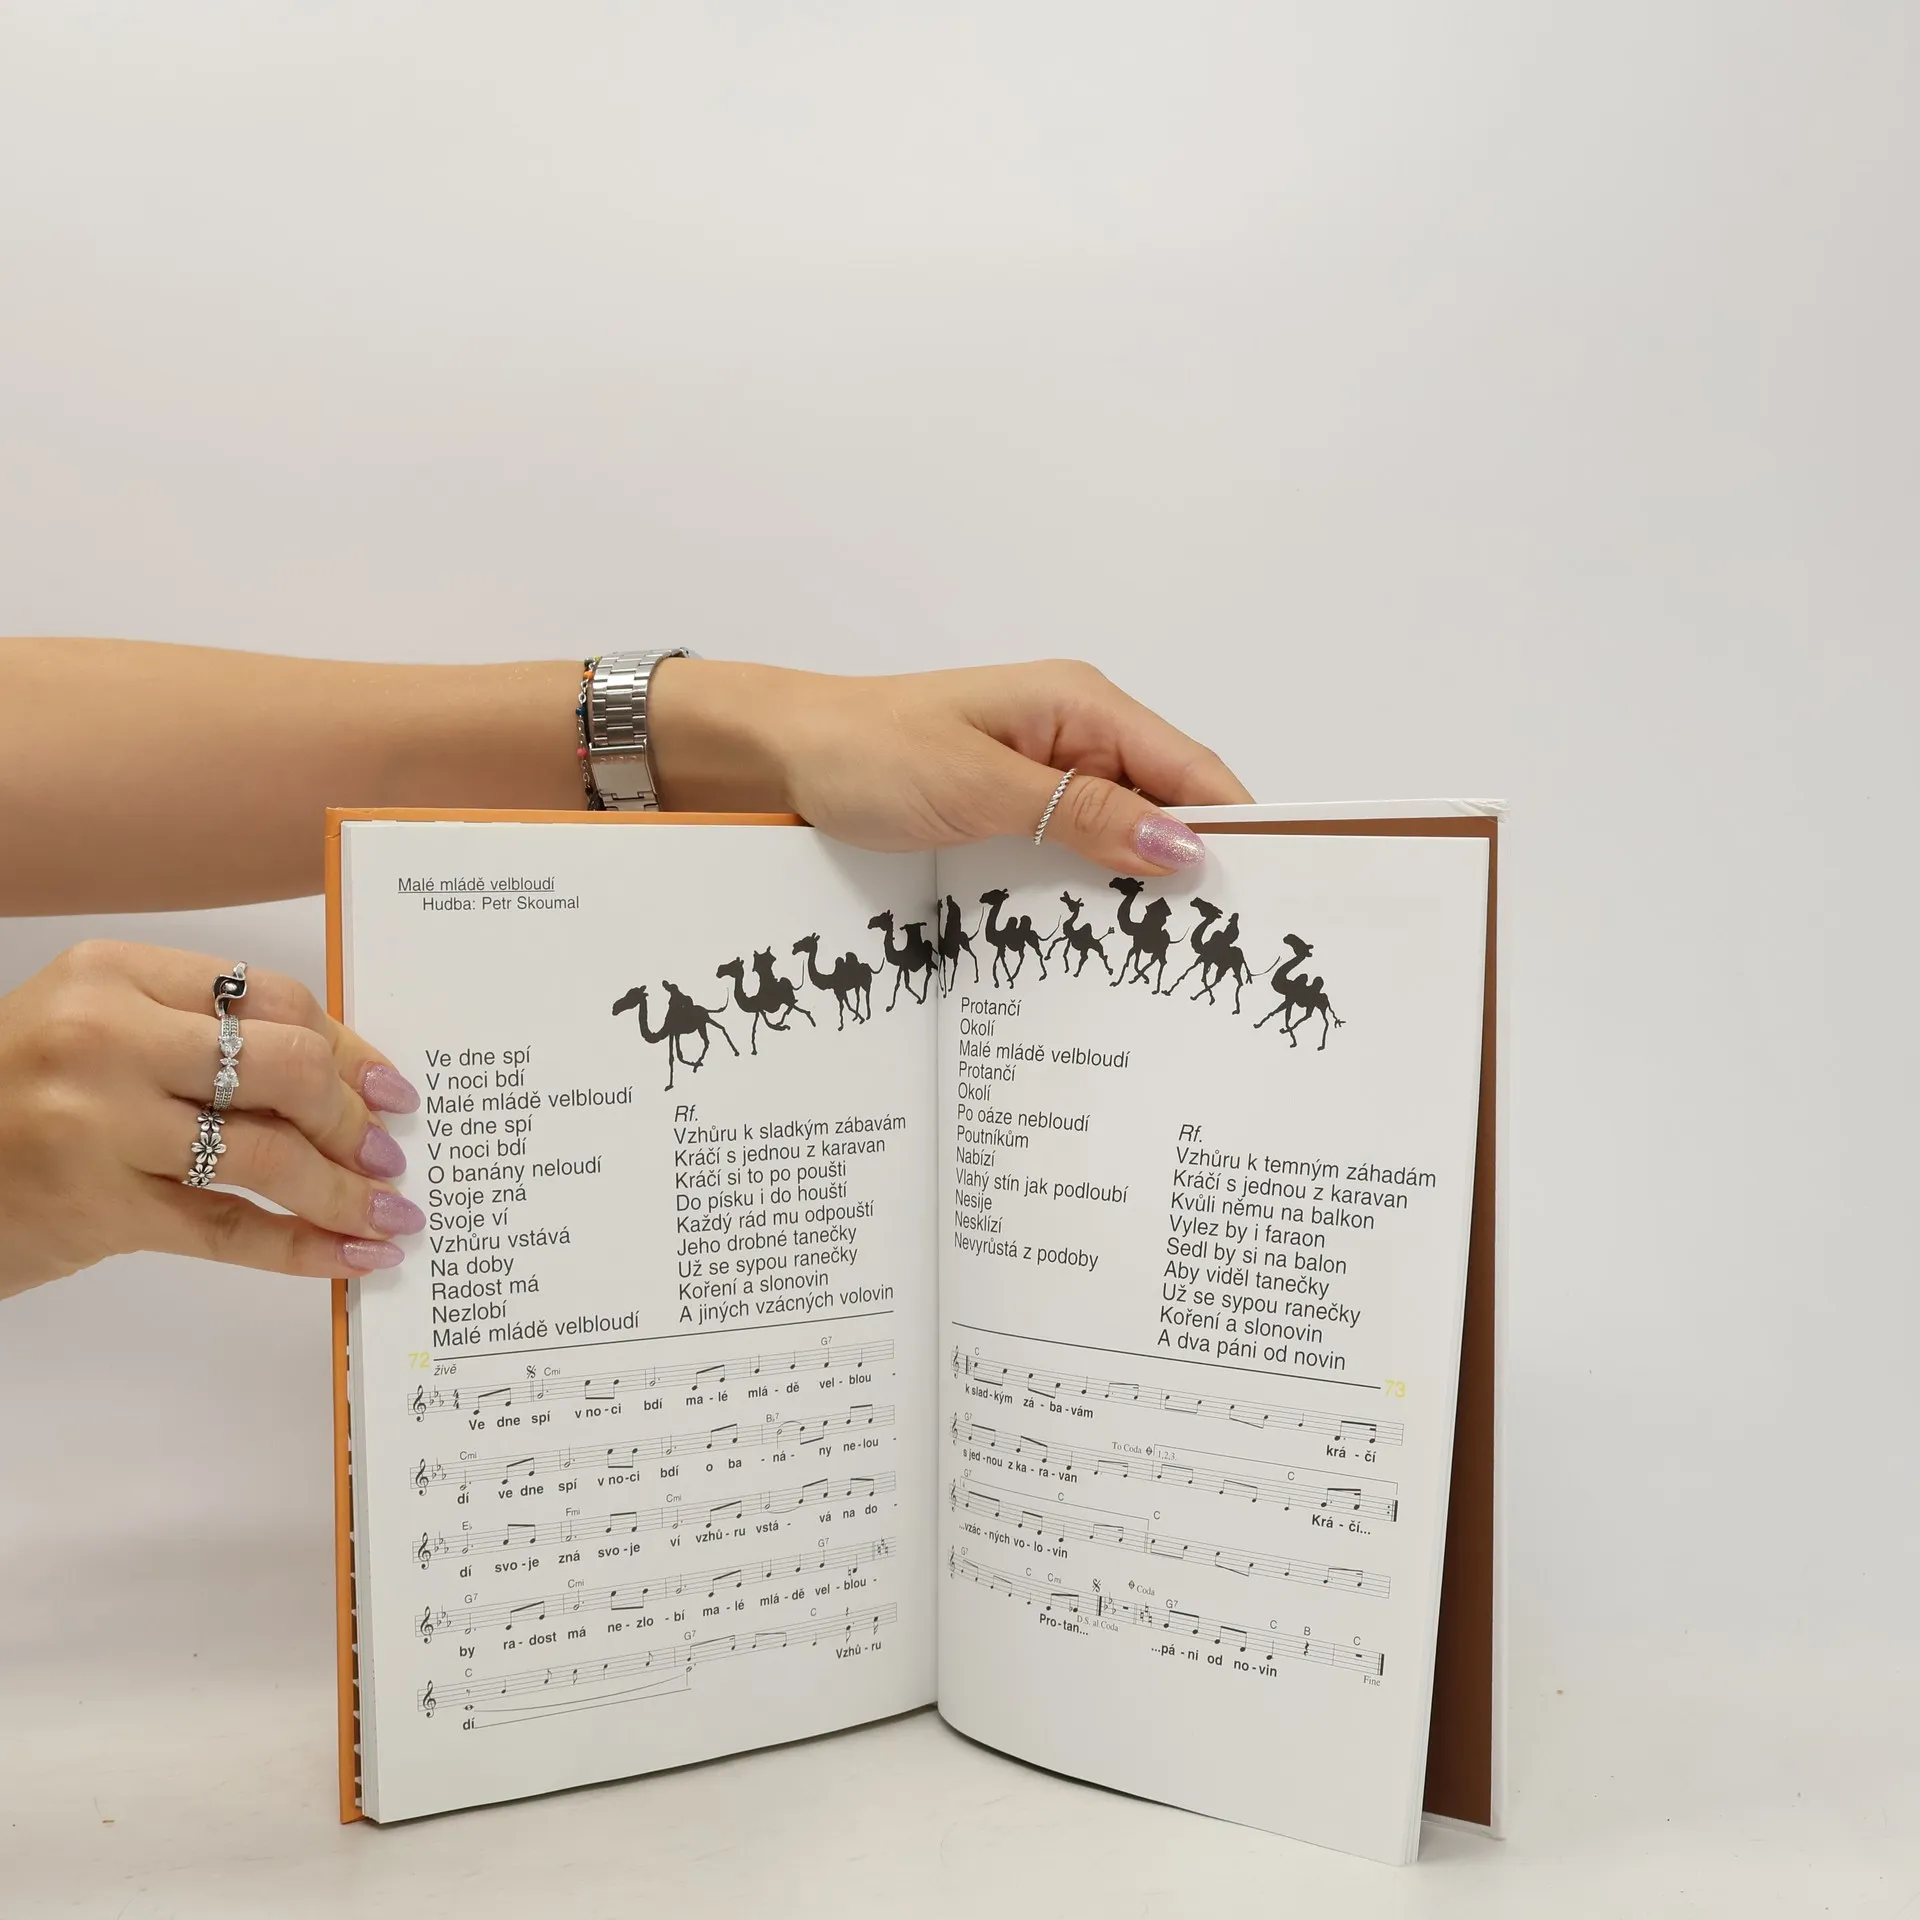 Malé mládě velbloudí
Hudba: Petr Skoumal
Ve dne spí
V noci bdí
Malé mládě velbloudí
Ve dne spí
V noci bdí
O banány neloudí
Svoje zná
Svoje ví
Vzhůru vstává
Na doby
Radost má
Nezlobí
Malé mládě velbloudí
Rf.
Vzhůru k sladkým zábavám
Kráčí s jednou z karavan
Kráčí si to po poušti
Do písku i do houští
Každý rád mu odpouští
Jeho drobné tanečky
Už se sypou ranečky
Koření a slonovin
A jiných vzácných volovin
72
živě
Cmi G7
Ve dne spí v no - ci bdí ma - lé mlá - dě vel - blou -
Cmi B♭7
dí ve dne spí v no - ci bdí o ba - ná - ny ne - lou -
E♭ Fmi Cmi
dí svo - je zná svo - je ví vzhů - ru vstá - vá na do -
G7 Cmi G7
by ra - dost má ne - zlo - bí ma - lé mlá - dě vel - blou -
C G7 C
dí Vzhů - ru
Protančí
Okolí
Malé mládě velbloudí
Protančí
Okolí
Po oáze nebloudí
Poutníkům
Nabízí
Vlahý stín jak podloubí
Nesije
Nesklízí
Nevyrůstá z podoby
Rf.
Vzhůru k temným záhadám
Kráčí s jednou z karavan
Kvůli němu na balkon
Vylez by i faraon
Sedl by si na balon
Aby viděl tanečky
Už se sypou ranečky
Koření a slonovin
A dva páni od novin
73
C
k slad - kým zá - ba - vám krá - čí
G7 To Coda 1,2,3. C
s jed - nou z ka - ra - van Krá - čí...
G7 C C
...vzác - ných vo - lo - vin
G7 C Cmi Coda G7 C B C
Pro - tan... D.S. al Coda ...pá - ni od no - vin Fine